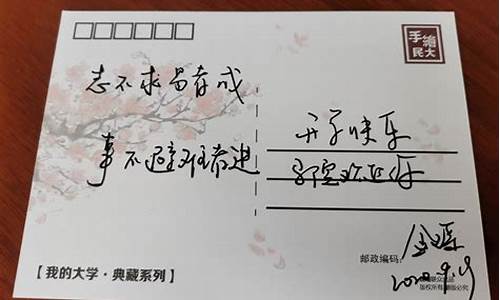 手绘
民大
志不求易者成
事不避难者进
开学快乐
邮政编码:
2020.9.19
【我的大学·典藏系列】
版权所有 翻版必究